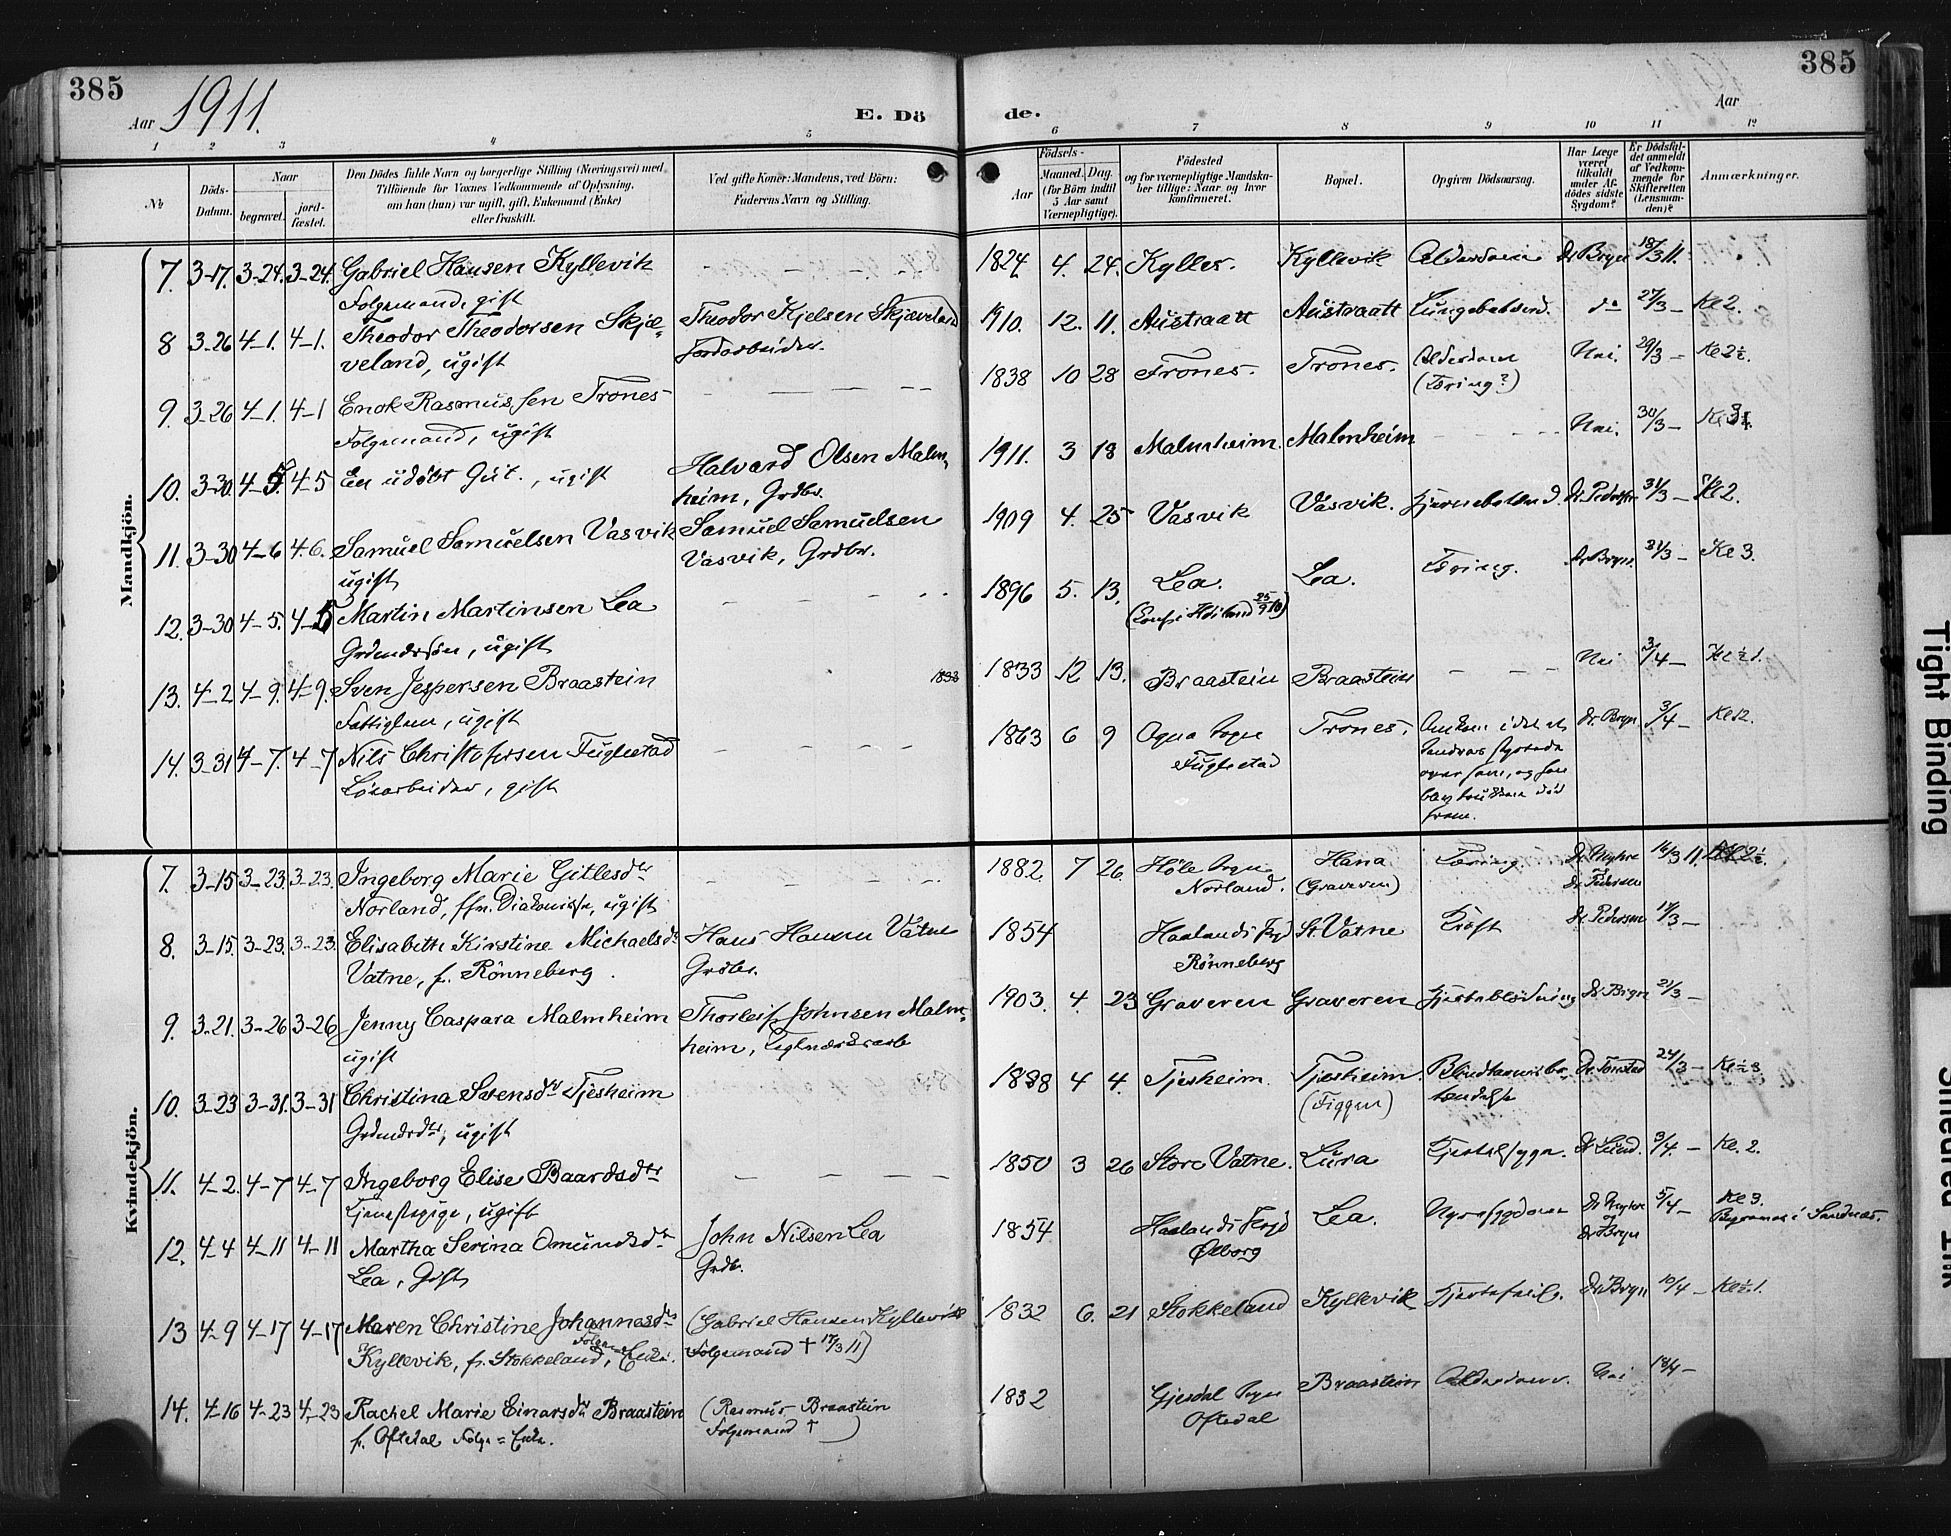 385
Aar 1911.
E. Dö
de.
Aar
385
1 2 3 4 5 6 7 8 9 10 11 12
No
Döds-Datum.
Naar
begravet.
jord-fæstet.
Den Dödes fulde Navn og borgerlige Stilling (Næringsvei) med
Tilföiende for Voxnes Vedkommende af Oplysning,
om han (hun) var ugift, gift, Enkemand (Enke)
eller fraskilt.
Ved gifte Koner: Mandens, ved Börn:
Faderens Navn og Stilling.
Födsels-
Aar
Maaned. Dag.
(for Börn indtil
5 Aar samt
Værnepligtige).
Födested
og for værnepligtige Mandska-
ber tillige: Naar og hvor
konfirmeret.
Bopæl.
Opgiven Dödsaarsag.
Har Læge
været
tilkaldt
under Af-
dödes sidste
Sygdom?
Er Dödsfal-
det anmeldt
af Vedkom-
mende for
Skifteretten
(Lensman-
den)?
Anmærkninger.
Mandkjön.
7. 3-17. 3-24. 3-24. Gabriel Hansen Kyllevik 1824 4. 24. Kylles. Kyllevik Alderdom Dr Bryn 18/3 11.
Folgemand, gift
8 3-26 4-1. 4-1. Theodor Theodorsen Skjæ- Theodor Kjelsen Skjæveland 1910. 12. 11. Austraatt Austraatt do 27/3 - Kl 2.
veland, ugift Jordarbeider.
9. 3-26 4-1. 4-1 Enok Rasmussen Trones 1838 10 28 Trones. Trones. Alderdom Nei. 29/3 - Kl 2½.
Folgemand, ugift (Tæring?)
10. 3-30 4-5. 4-5 En udöbt Gut., ugift Halvard Olsen Malm- 1911. 3 18 Malmheim. Malmheim Nei. 30/3 -
heim, Grdbr.
11. 3-30 4-6 4-6. Samuel Samuelsen Vasvik Samuel Samuelsen 1909 4. 25 Vasvik Vasvik. 31/3 - Kl 2.
ugift Vasvik, Grdbr.
12. 3-30 4-5. 4-5 Martin Martinsen Lea 1896 5. 13. Lea. Lea. Tæring. Dr Bryn. 31/3 - Kl 3.
Grdmdssön, ugift (Konf. i Höiland 25/9 10)
13. 4-2 4-9. 4-9. Sven Jespersen Braastein 1833 1833 12 13. Braastein Braastein Nei 3/4 -
Fattiglem, ugift
14. 3-31 4-7. 4-7 Nils Christofersen Fuglestad 1863 6 9 Ogna Sogn Trones. Omkom i det et Dr. Bryn 3/4 - Kl 12.
Lösarbeider, gift Fuglestad
over ham, og han
blev trukken död
frem.
Kvindekjön.
7. 3-15 3-23. 3-23. Ingeborg Marie Gitlesdtr 1882. 7 26. Höle Sogn Hana Tæring. 16/3 11.
Norland, fhv. Diakonisse, ugift Norland. (Graveren) Dr Pedersen
8. 3-15. 3-23. 3-23. Elisabeth Kirstine Michaelsdr Hans Hansen Vatne 1854 Haalands Prgj St. Vatne Kræft Dr Pedersen 17/3 -
Vatne, f. Rönneberg. Grdbr. Rönneberg
9. 3-21. 3-26 3-26 Jenny Caspara Malmheim Thorleif Johnsen Malm- 1903. 4. 23 Graveren Graveren Hjerteblödning Dr Bryn 21/3 -
ugift heim, Teglværksarb
10. 3-23 3-31. 3-31 Christina Svensdtr Tjesheim 1888 4 4. Tjesheim. Tjesheim. Blindtarmsbe- Dr Tonstad 24/3 -
Grdmdsdtr, ugift (Figgen) tændelse
11. 4-2. 4-7 4-7 Ingeborg Elise Baardsdtr 1850 3 26 Store Vatne. Lura Hjertesygd. Dr Lund. 3/4 - Kl. 2.
Tjenestepige, ugift
12. 4-4 4-11 4-11 Martha Serina Omundsdtr John Nilsen Lea 1854 Haalands Prgj Lea. Nyresygdom 5/4 - Kl 3.
Lea, Gift Grdbr. Ølborg Dr Bryn Begraves i Sandnæs.
13 4-9 4-17 4-17 Maren Christine Johannesdtr (Gabriel Hansen Kyllevik 1832 6. 21 Stokkeland Kyllevik Hjertefeil. Dr Bryn 10/4 -
Kyllevik, f. Stokkeland, Folge Enke. Folgemand † 17/3 11)
14. 4-16 4-23 4-23 Rachel Marie Einarsdtr Braastein (Rasmus Braastein 1832 Gjesdal Sogn Braastein Alderdom. Nei 18/4 -
f. Oftedal Folge-Enke. Folgemand †) Oftedal
Tight Binding
Smeared Ink